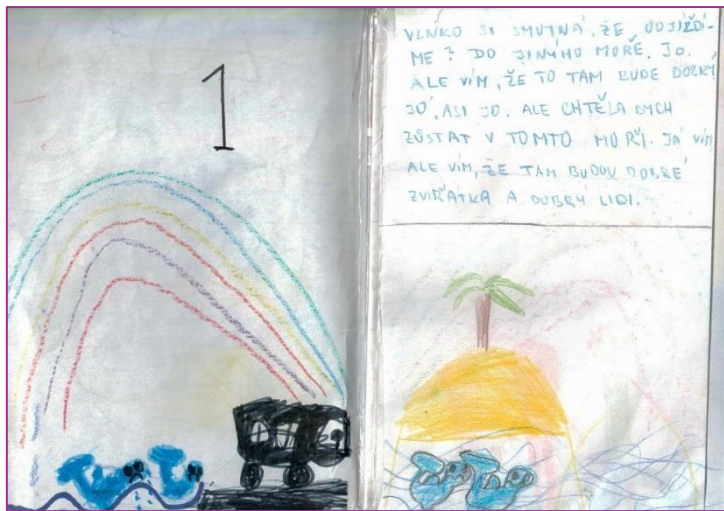 1
VLNKO SI SMUTNÁ, ŽE ODJÍŽDÍ-
ME? DO JINÝHO MOŘE. JO.
ALE VÍM, ŽE TO TAM BUDE DOBRÝ
JÓ, ASI JO. ALE CHTĚLA BYCH
ZŮSTAT V TOMTO MOŘI. JÁ VÍM
ALE VÍM, ŽE TAM BUDOU DOBRÉ
ZVIŘÁTKA A DOBRÝ LIDI.